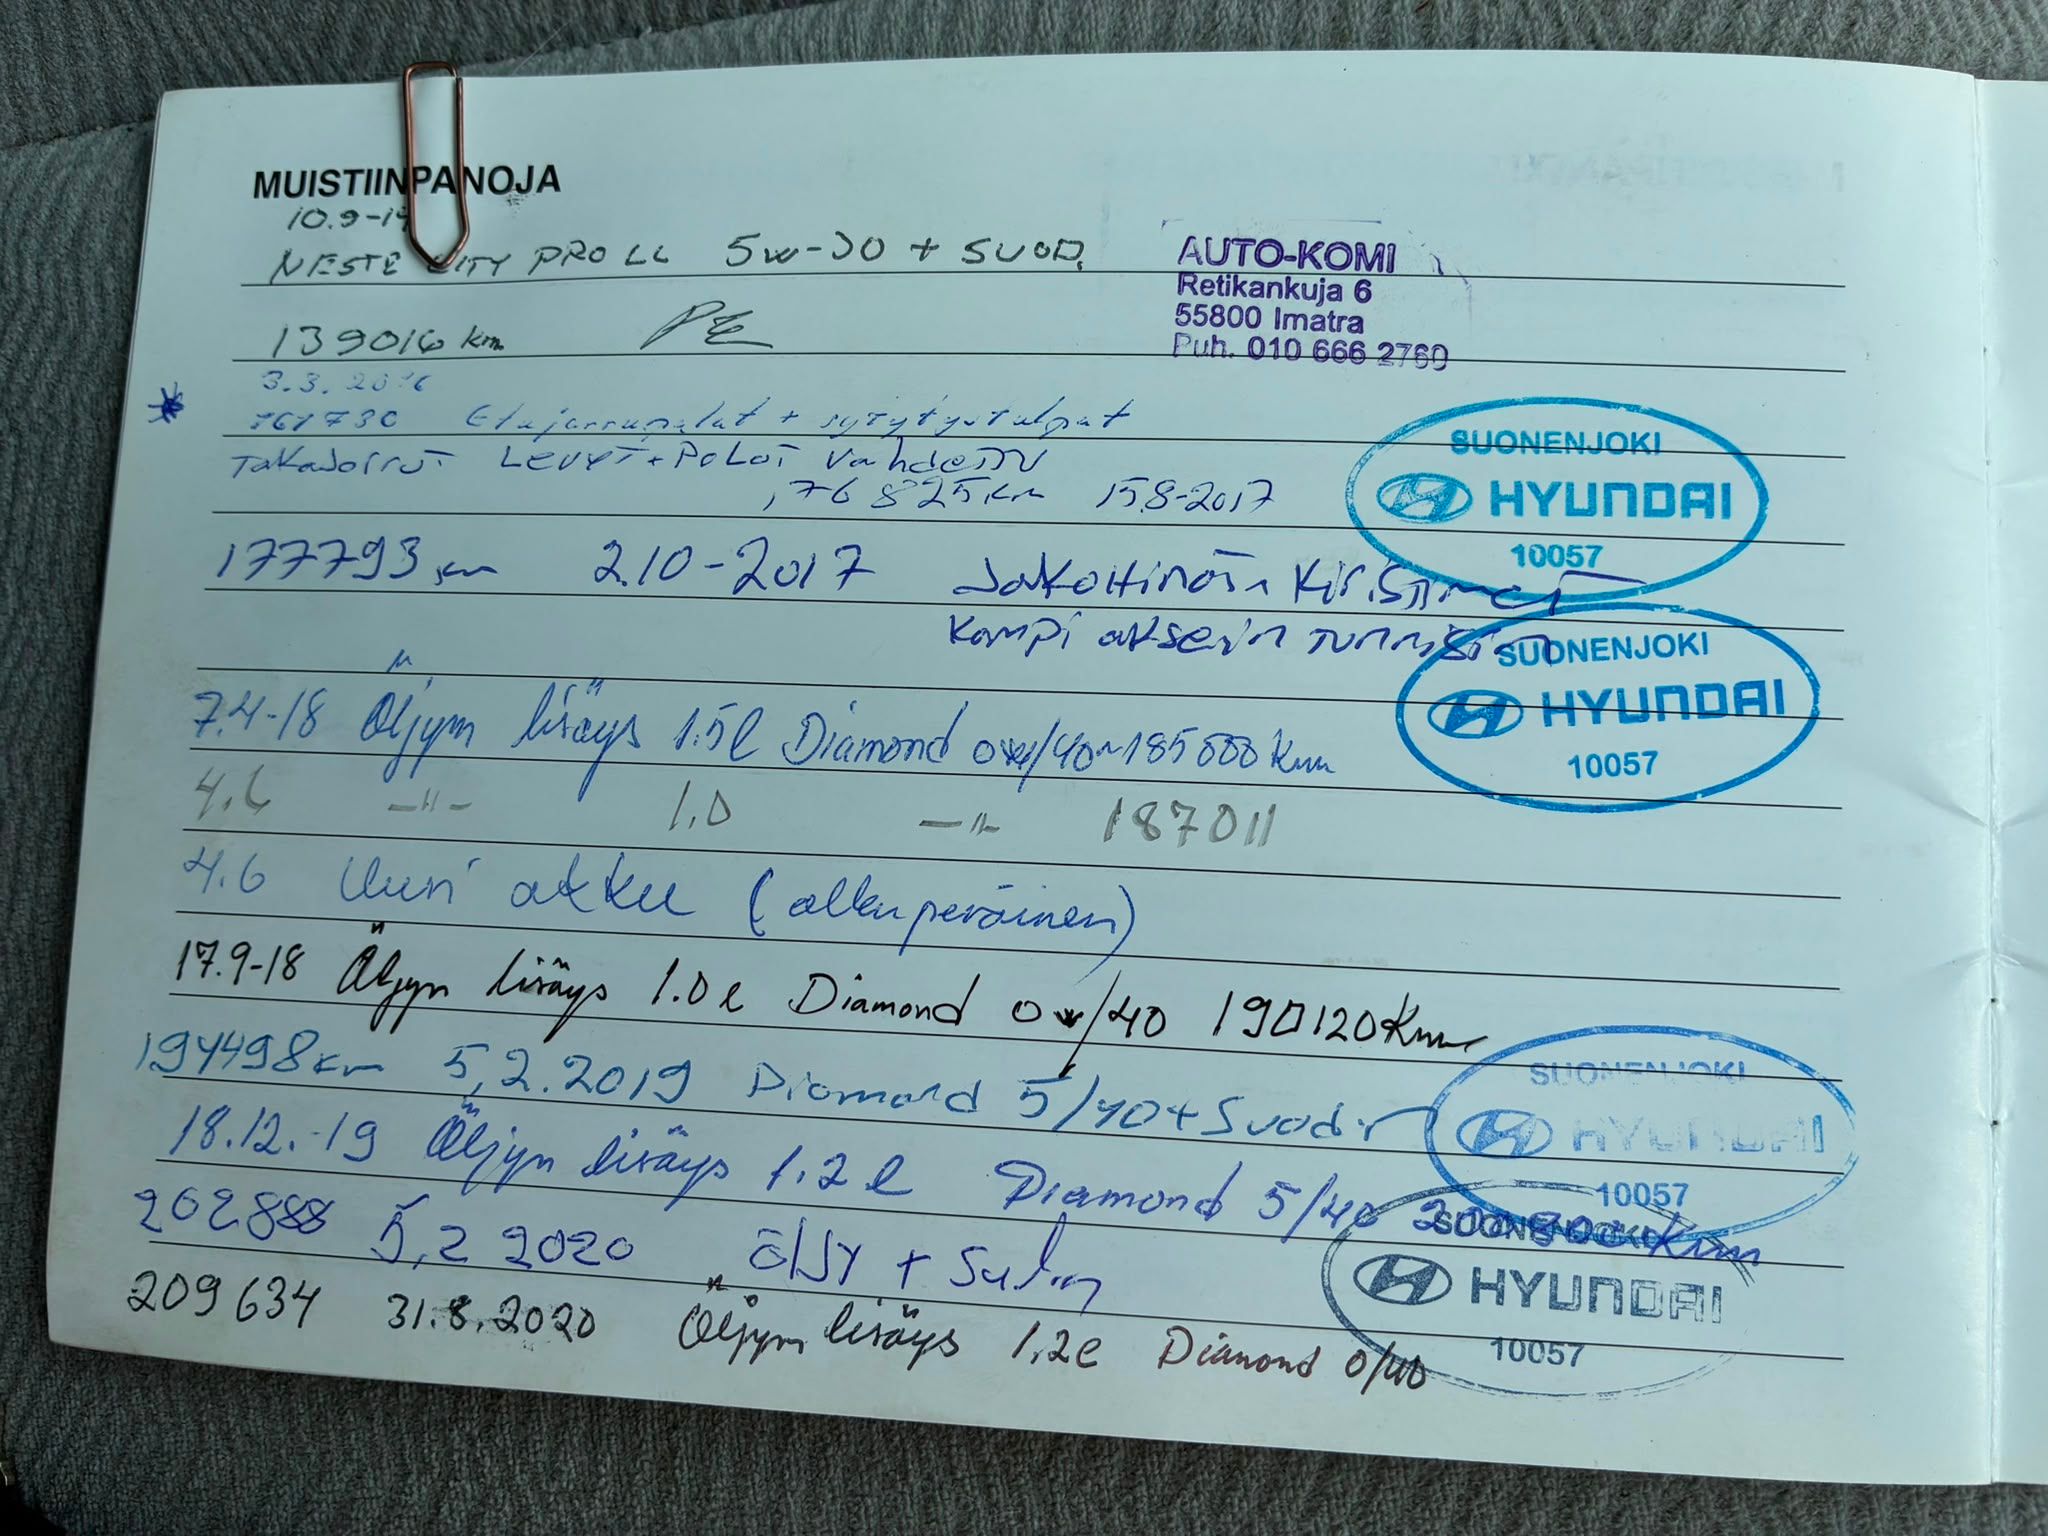 MUISTIINPANOJA
10.9-14
NESTE CITY PRO LL 5W-30 + SUOD.
139016 km
AUTO-KOMI
Retikankuja 6
55800 Imatra
Puh. 010 666 2760
3.3.2016
161730 Etujarrupalat + sytytystulpat
Takajarrut Levyt + Palat vahdettu
176 825 km 15.8-2017
SUONENJOKI
HYUNDAI
10057
177793 km 2.10-2017 Jakohihnan kiristimet
Kampi akselin tunnistin
SUONENJOKI
HYUNDAI
10057
7.4-18 Öljyn lisäys 1.5 l Diamond 0w/40 ~185000 Km
4.6 -"- 1.0 -"- 187011
4.6 Uusi akku (alkuperäinen)
17.9-18 Öljyn lisäys 1.0 l Diamond 0w/40 190120 Km
194498 km 5.2.2019 Diamond 5/40 + Suodin
SUONENJOKI
HYUNDAI
10057
18.12.-19 Öljyn lisäys 1.2 l Diamond 5/40 Km
202888 5.2 2020 öljy +
SUONENJOKI
HYUNDAI
10057
209634 31.8.2020 Öljyn lisäys 1,2 l Diamond 0/40